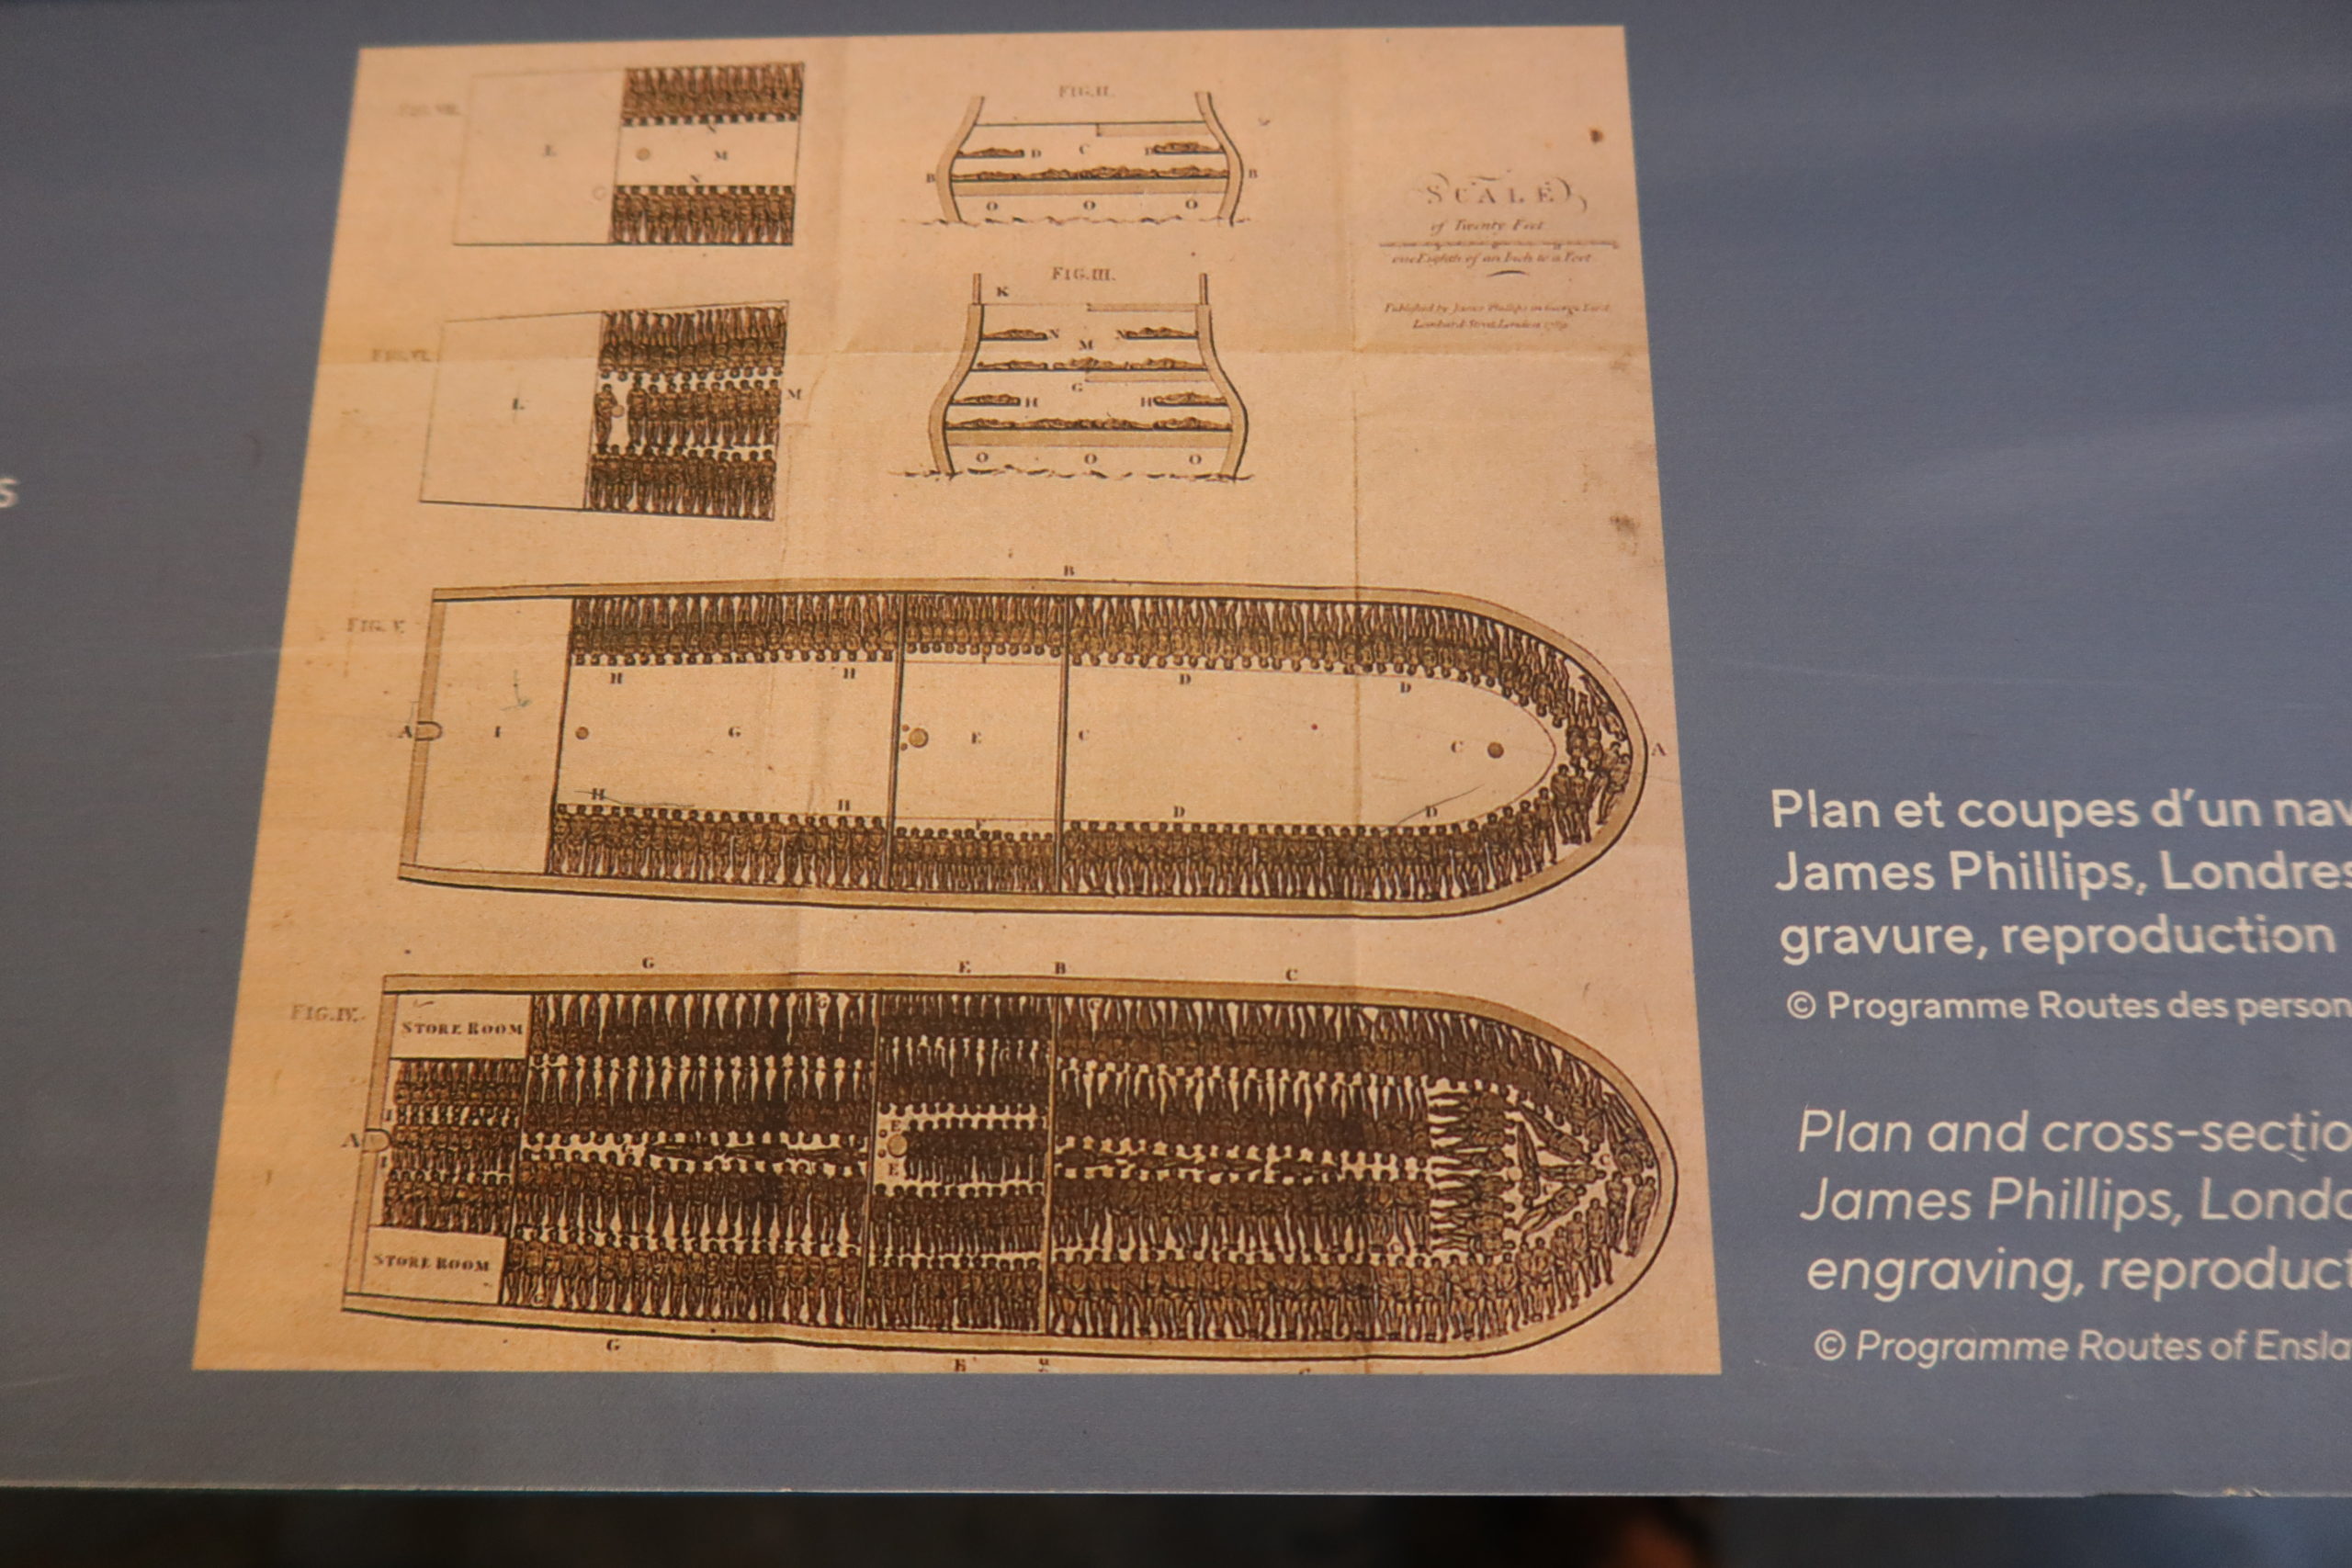 s
FIG. VII.
N
L
M
N
FIG. II.
D
C
D
B
B
O
O
O
SCALE
of Twenty Feet
one Eighth of an Inch to a Foot
Published by James Phillips in George Yard
Lombard Street London 1789
FIG. VI.
L
M
FIG. III.
K
N
N
M
G
H
H
O
O
O
FIG. V.
B
H
H
F
D
D
A
I
G
E
C
C
A
H
H
F
D
D
FIG. IV.
G
E
B
C
STORE ROOM
G
C
I
A
I
E
E
STORE ROOM
G
E
B
C
Plan et coupes d'un nav
James Phillips, Londres
gravure, reproduction
© Programme Routes des person
Plan and cross-sectio
James Phillips, Londo
engraving, reproduct
© Programme Routes of Ensla